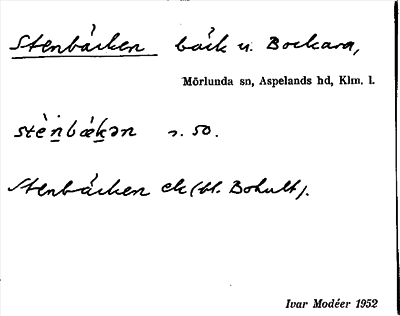 Stenbäcken bäck n. Bockara,
Mörlunda sn, Aspelands hd, Klm. l.
stè̀n̲bæk̲ən s. 50.
Stenbäcken ek (bl. Bohult).
Ivar Modéer 1952